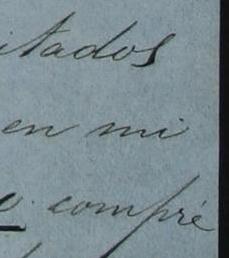 itados
en mi
compré